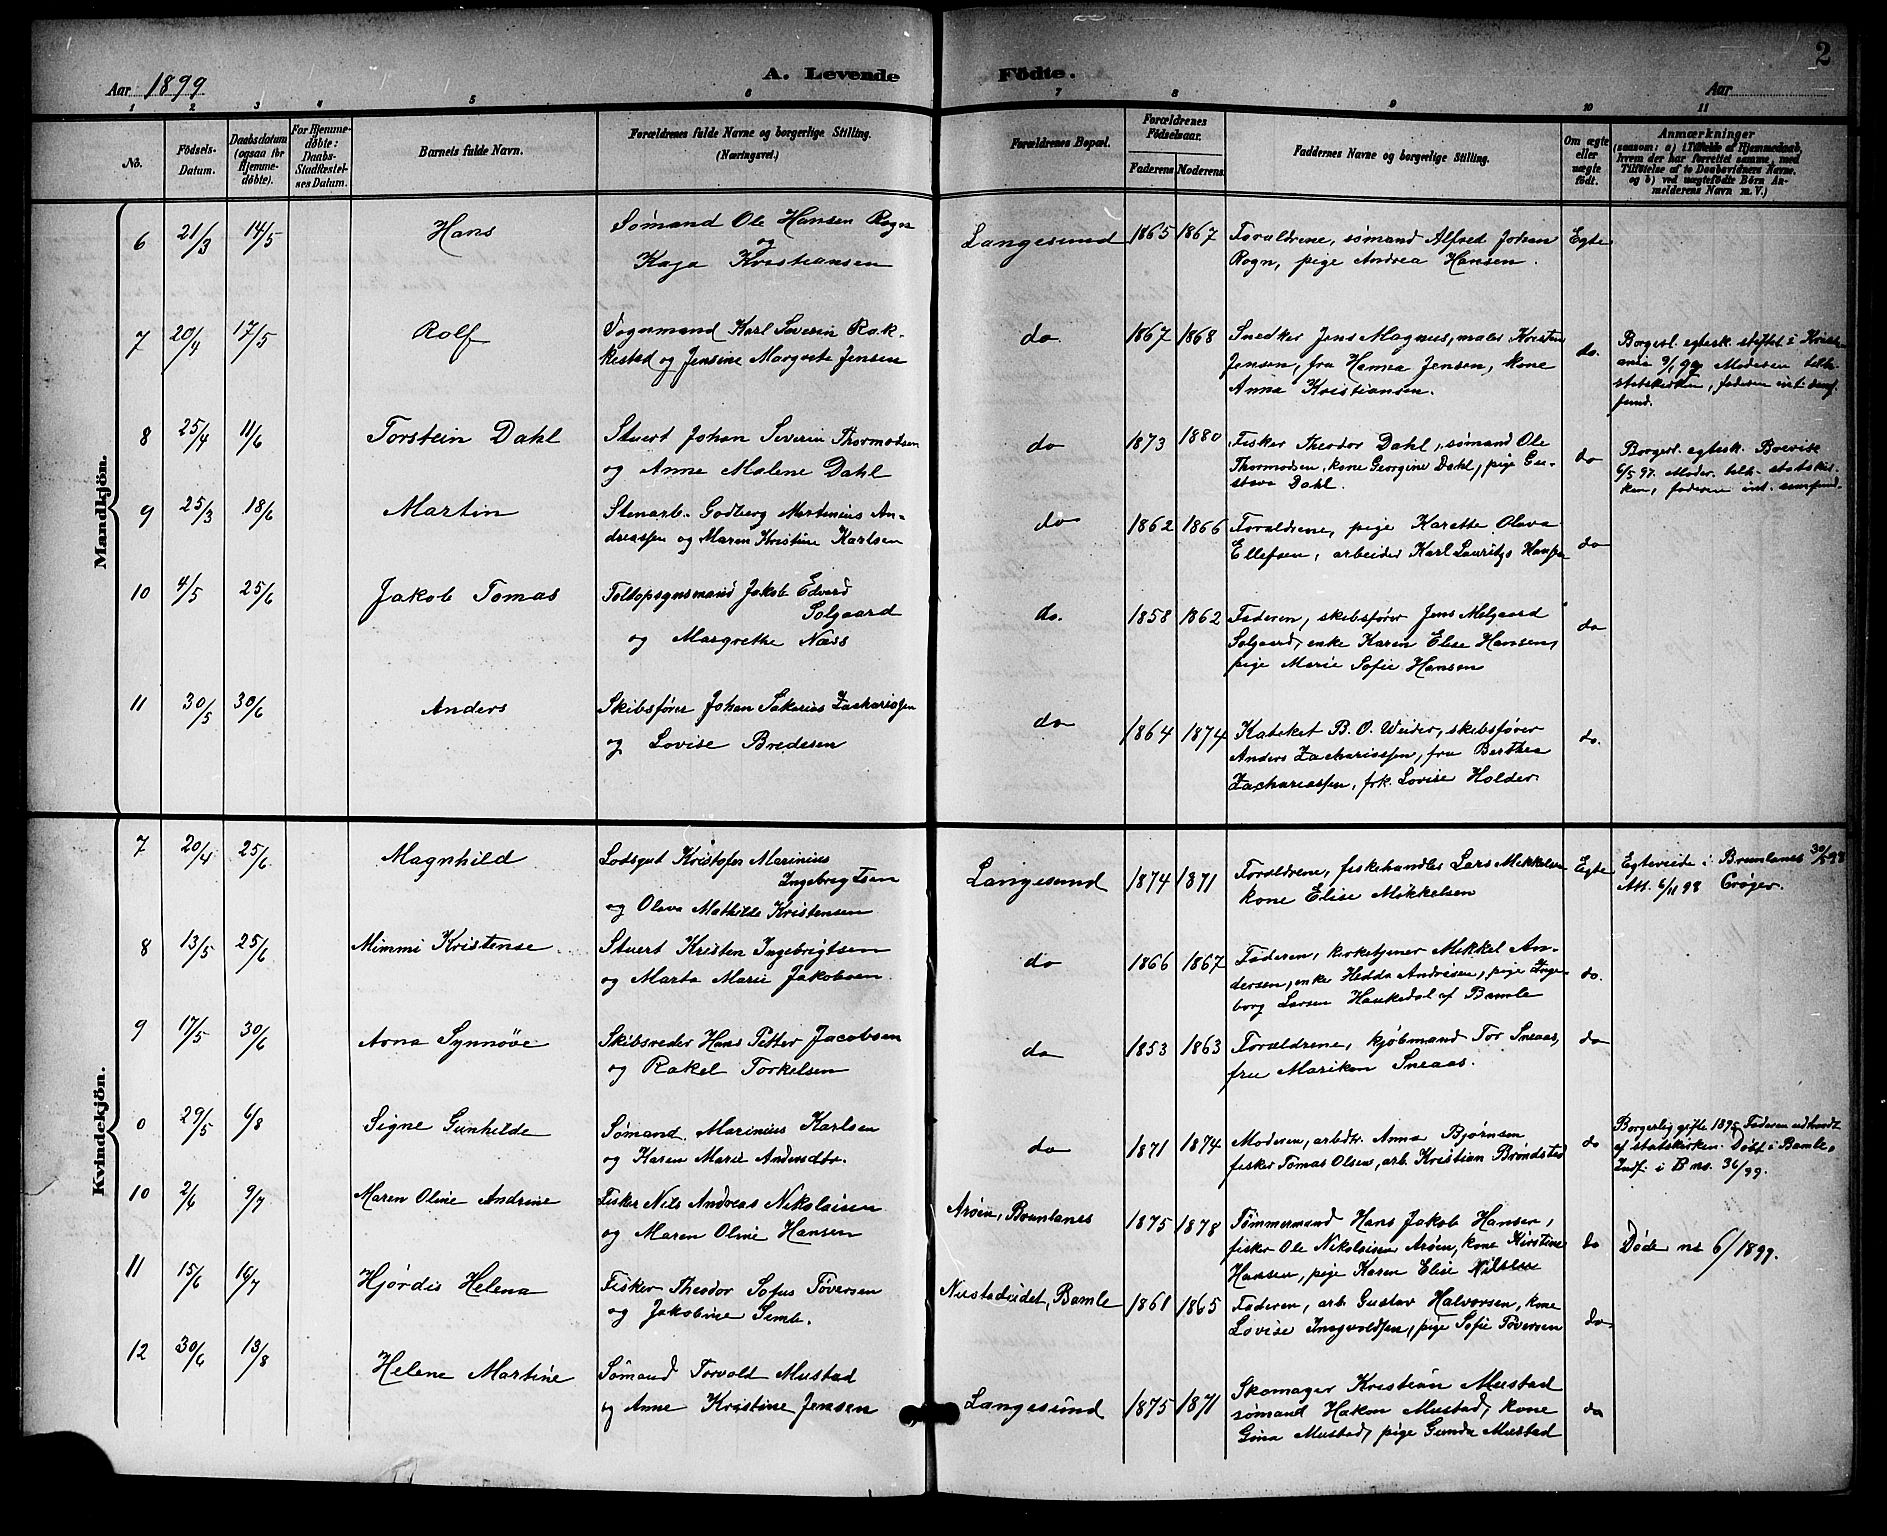 2
Aar 1899
A. Levende Födte.
Aar
1 2 3 4 5 6 7 8 9 10 11
No.
Födsels-
Datum.
Daabsdatum
(ogsaa for
Hjemme-
döbte).
For Hjemme-
döbte:
Daabs-
Stadfæstel-
ses Datum.
Barnets fulde Navn.
Forældrenes fulde Navne og borgerlige Stilling.
(Næringsvei.)
Forældrenes Bopæl.
Forældrenes
Födselsaar.
Faderens
Moderens
Faddernes Navne og borgerlige Stilling.
Om ægte
eller
uægte
født.
Anmærkninger
(saasom: a) i Tilfælde af Hjemmedaab,
hvem der har forrettet samme, med
Tilføielse af to Daabsvidners Navne.
og b) ved uægtefödte Börn An-
melderens Navn m. V.)
Mandkjön.
6 21/3 14/5 Hans
Sømand Ole Hansen Rogn
og
Kaja Kristiansen
Langesund 1865 1867
Forældrene, sømand Alfred Johsen
Rogn, pige Andrea Hansen.
Egte
7 20/4 17/5 Rolf
Fogmand Karl Severin Rak-
kestad og Jensine Margrete Jensen
do. 1867 1868
Snedker Jens Magnus, maler Kristen
Jensen, fru Hanna Jensen, kone
Anna Kristiansen.
do.
Borgerl. egtesk. stiftet i Kristi-
ania 9/1 97 Moderen tilh.
statskirken, faderen int. samf-
fund.
8 25/4 11/6 Torstein Dahl
Stuert Johan Severin Thormodsen
og Anne Malene Dahl
do 1873 1880
Fisker Theodor Dahl, sømand Ole
Thormodsen, kone Georgine Dahl, pige Gu-
stava Dahl.
do
Borgerl. egtesk. Brevik
6/5 97. Moder. tilh. statskir-
ken, faderen int. samfund.
9 25/3 18/6 Martin
Stenarb. Godberg Martinius An-
dreassen og Maren Kristine Karlsen
do 1862 1866
Forældrene, pige Karette Olava
Ellefsen, arbeider Karl Lauritz Hansen
do
10 4/5 25/6 Jakob Tomas
Toldopsynsmand Jakob Edvard
Solgaard
og Margrethe Næss
do. 1858 1862
Faderen, skibsfører Jens Melgaard
Solgaard, enke Karen Elise Hansen,
pige Marie Sofie Hansen
do
11 30/5 30/6 Anders
Skibsfører Johan Sakarias Zachariassen
og Lovise Bredesen
do 1864 1874
Kateket B. O. Weider, skibsfører
Anders Zachariassen, fru Berthea
Zachariassen, frk. Lovise Holder.
do.
Kvindekjön.
7 20/4 25/6 Magnhild
Lodsgut Kristofer Marinius
Ingebrigtsen
og Olava Mathilde Kristensen
Langesund 1874 1871
Forældrene, fiskehandler Lars Mikkelsen
kone Elise Mikkelsen
Egte
Egteviede i Brunlanes 30/5 98
Att. 6/11 98 Crøger.
8 13/5 25/6 Mimmi Kristense
Stuert Kristen Ingebrigtsen
og Marta Marie Jakobsen
do 1866 1867
Faderen, kirketjener Mikkel An-
dersen, enke Hedda Andrésen, pige Inge-
borg Larsen Haukedal af Bamle
do.
9 17/5 30/6 Arna Synnöve
Skibsreder Hans Petter Jacobsen
og Rakel Torkelsen
do 1853 1863
Forældrene, kjøbmand Tor Sneaas,
fru Mariken Sneaas.
do
0 29/5 6/8 Signe Gunhilde
Sømand Marinius Karlsen
og Karen Marie Andersdtr.
do 1871 1874
Moderen, arbdtr. Anna Bjørnsen
fisker Tomas Olsen, arb. Kristian Brøndsted
do
Borgerlig gifte 1895 Faderen udtraadt
af statskirken. Døbt i Bamle.
Indf. i B ns. 36/99.
10 2/6 9/7 Maren Oline Andrine
Fisker Nils Andreas Nikolaisen
og Maren Oline Hansen
Arøen, Brunlanes 1875 1878
Tømmermand Hans Jakob Hansen,
fisker Ole Nikolaisen Arøen, kone Kirstine
Hansen, pige Karen Elise Nilsen
do
Døde ns 6/1899.
11 15/6 16/7 Hjördis Helena
Fisker Theodor Sofus Töversen
og Jakobine Semb.
Nustadeidet, Bamle 1861 1865
Faderen, arb. Gustav Halvorsen, kone
Lovise Ingvoldsen, pige Sofie Töversen
do
12 30/6 13/8 Helene Martine
Sømand Torvald Mustad
og Anne Kristine Jensen
Langesund 1875 1871
Skomager Kristian Mustad
sømand Hakon Mustad, kone
Gina Mustad, pige Gunda Mustad
do